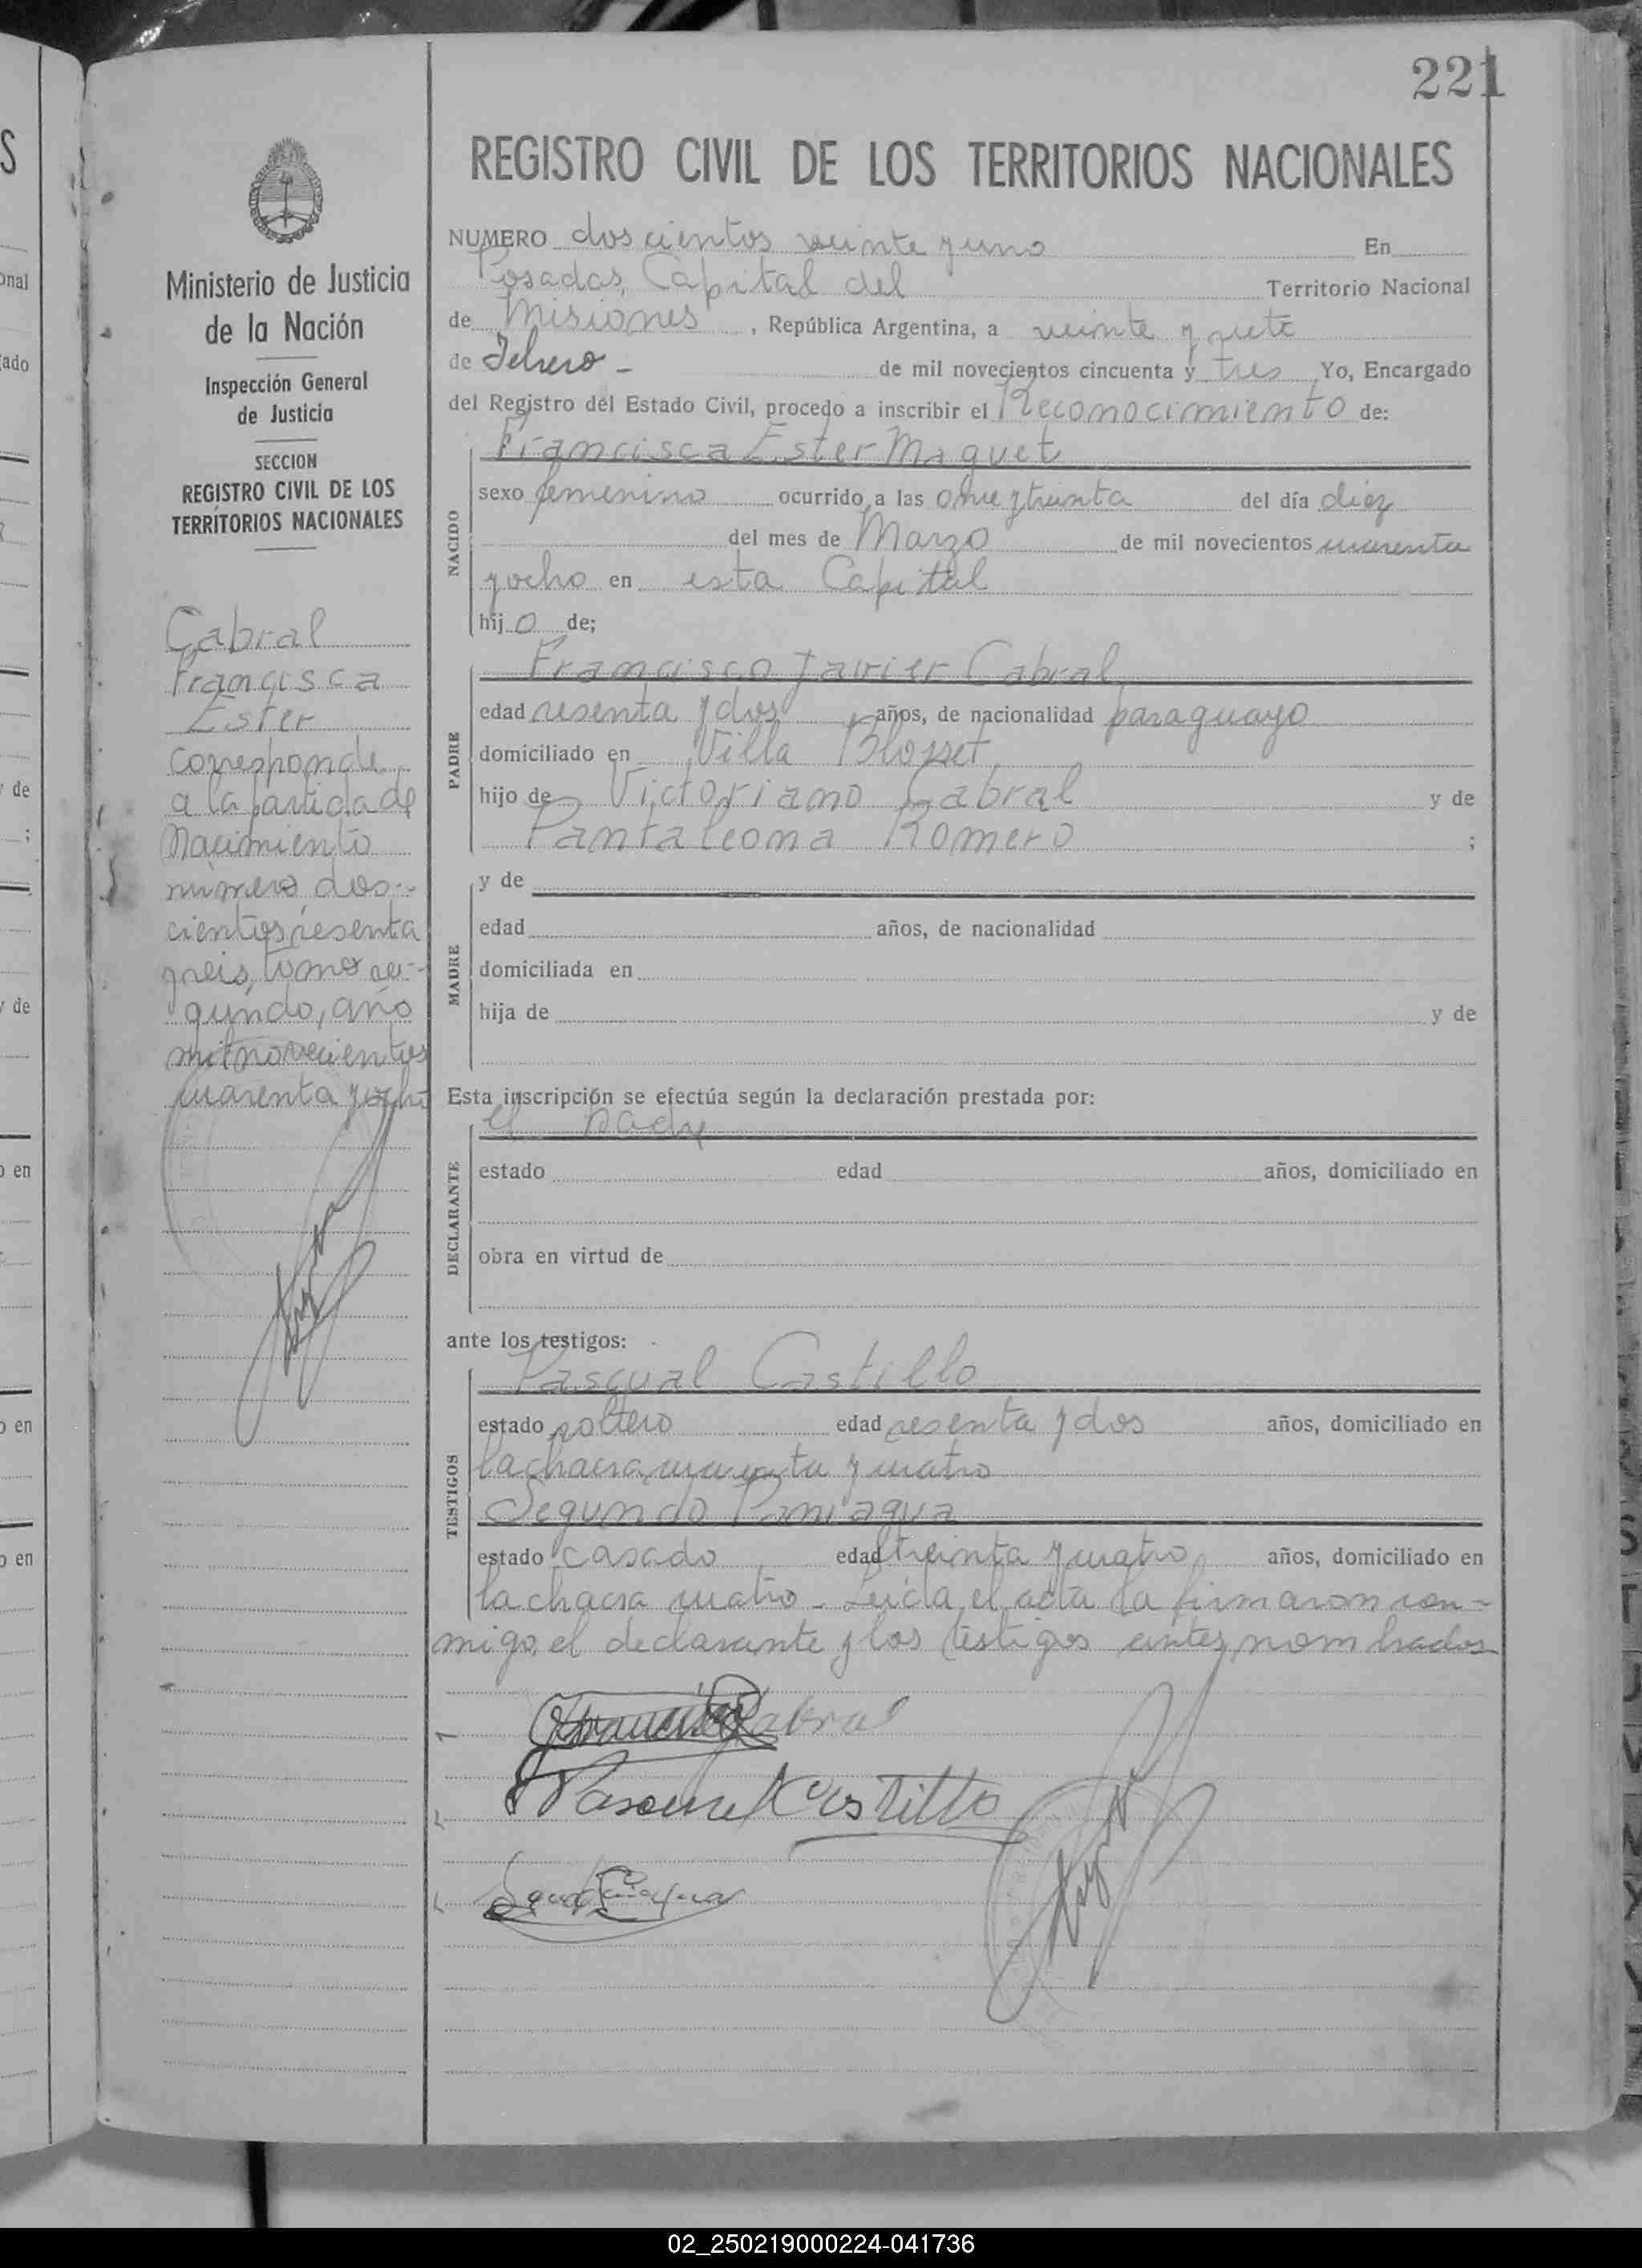 221
REGISTRO CIVIL DE LOS TERRITORIOS NACIONALES
Ministerio de Justicia
de la Nación
Inspección General
de Justicia
SECCION
REGISTRO CIVIL DE LOS
TERRITORIOS NACIONALES
Cabral
Francisca
Ester
corresponde
a la partida de
Nacimiento
número dos-
cientos sesenta
y seis, tomo se-
gundo, año
mil novecientos
cuarenta y ocho
NUMERO doscientos veinte y uno En
Posadas, Capital del Territorio Nacional
de Misiones, República Argentina, a veinte y siete
de Febrero - de mil novecientos cincuenta y tres Yo, Encargado
del Registro del Estado Civil, procedo a inscribir el Reconocimiento de:
Francisca Ester Maquet
NACIDO
sexo femenino ocurrido a las once y treinta del día diez
del mes de Marzo de mil novecientos cuarenta
y ocho en esta Capital
hijo de;
Francisco Javier Cabral
PADRE
edad sesenta y dos años, de nacionalidad paraguayo
domiciliado en Villa Blosset
hijo de Victoriano Cabral y de
Pantaleona Romero ;
MADRE
y de
edad años, de nacionalidad
domiciliada en
hija de y de
Esta inscripción se efectúa según la declaración prestada por:
el padre
DECLARANTE
estado edad años, domiciliado en
obra en virtud de
ante los testigos:
Pascual Castillo
TESTIGOS
estado soltero edad sesenta y dos años, domiciliado en
la chacra cuarenta y cuatro
Segundo Paniagua
estado casado edad treinta y cuatro años, domiciliado en
la chacra cuatro - Leída el acta la firmaron con-
migo, el declarante y los testigos antes nombrados
Francisco Cabral
Pascual Castillo
02_250219000224-041736